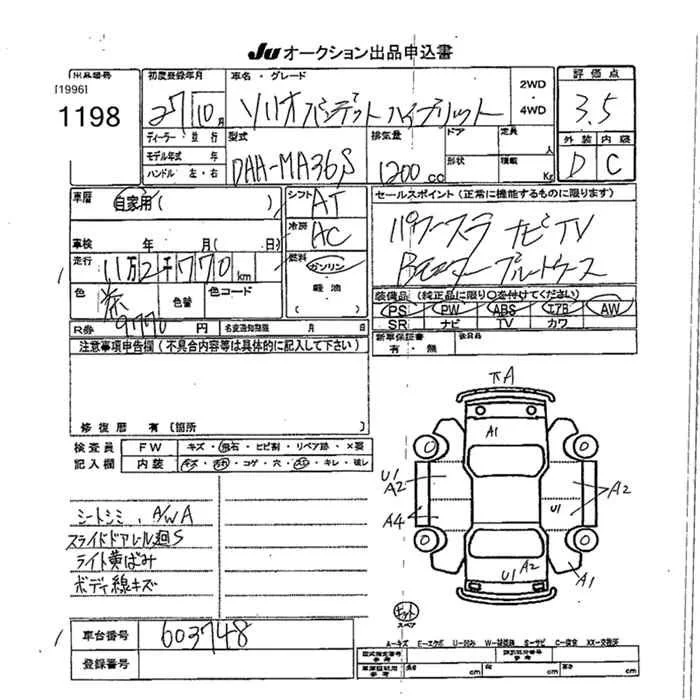 JU オークション出品申込書
出品番号 初度登録年月 車名・グレード 2WD・4WD 評価点
[1996]
1198 27 10月 ソリオ バンデット ハイブリット 3.5
ディーラー・並行 型式 排気量 ドア 定員 人 外装 内装
モデル年式 年 DAA-MA36S 1200cc 形状 積載 Kg D C
ハンドル 左・右
車歴 自家用( ) シフト AT セールスポイント(正常に機能するものに限ります)
冷房 AC パワースラ ナビTV
車検 年 月( 日) ブルートゥース
走行 11万2千770km 燃料 ガソリン
色 茶 色替 色コード 軽油 ( ) 装備品(純正品に限り○を付けてください)
PS PW ABS エアB AW
R券 9770円 名変通知期限 月 日 SR ナビ TV カワ
注意事項申告欄(不具合内容等は具体的に記入して下さい) 新車保証書 後日品
有・無
修復歴 有〔箇所
検査員 FW キズ・飛石・ヒビ割・リペア跡・×要
記入欄 内装 キズ・汚れ・コゲ・穴・スレ・キレ・破レ
πA
A1
U1
A2 A2
U1
A4
U1 A2
A1
シートシミ、A/WA
スライドドアレール廻S
ライト黄ばみ
ボディ線キズ
キット
スペア
車台番号 603748
A-キズ E-エクボ U-凹み W-補修跡 S-サビ C-腐食 XX-交換済
登録番号
型式指定番号 参考 類別区分番号 参考
長さ cm 巾 cm 高さ cm